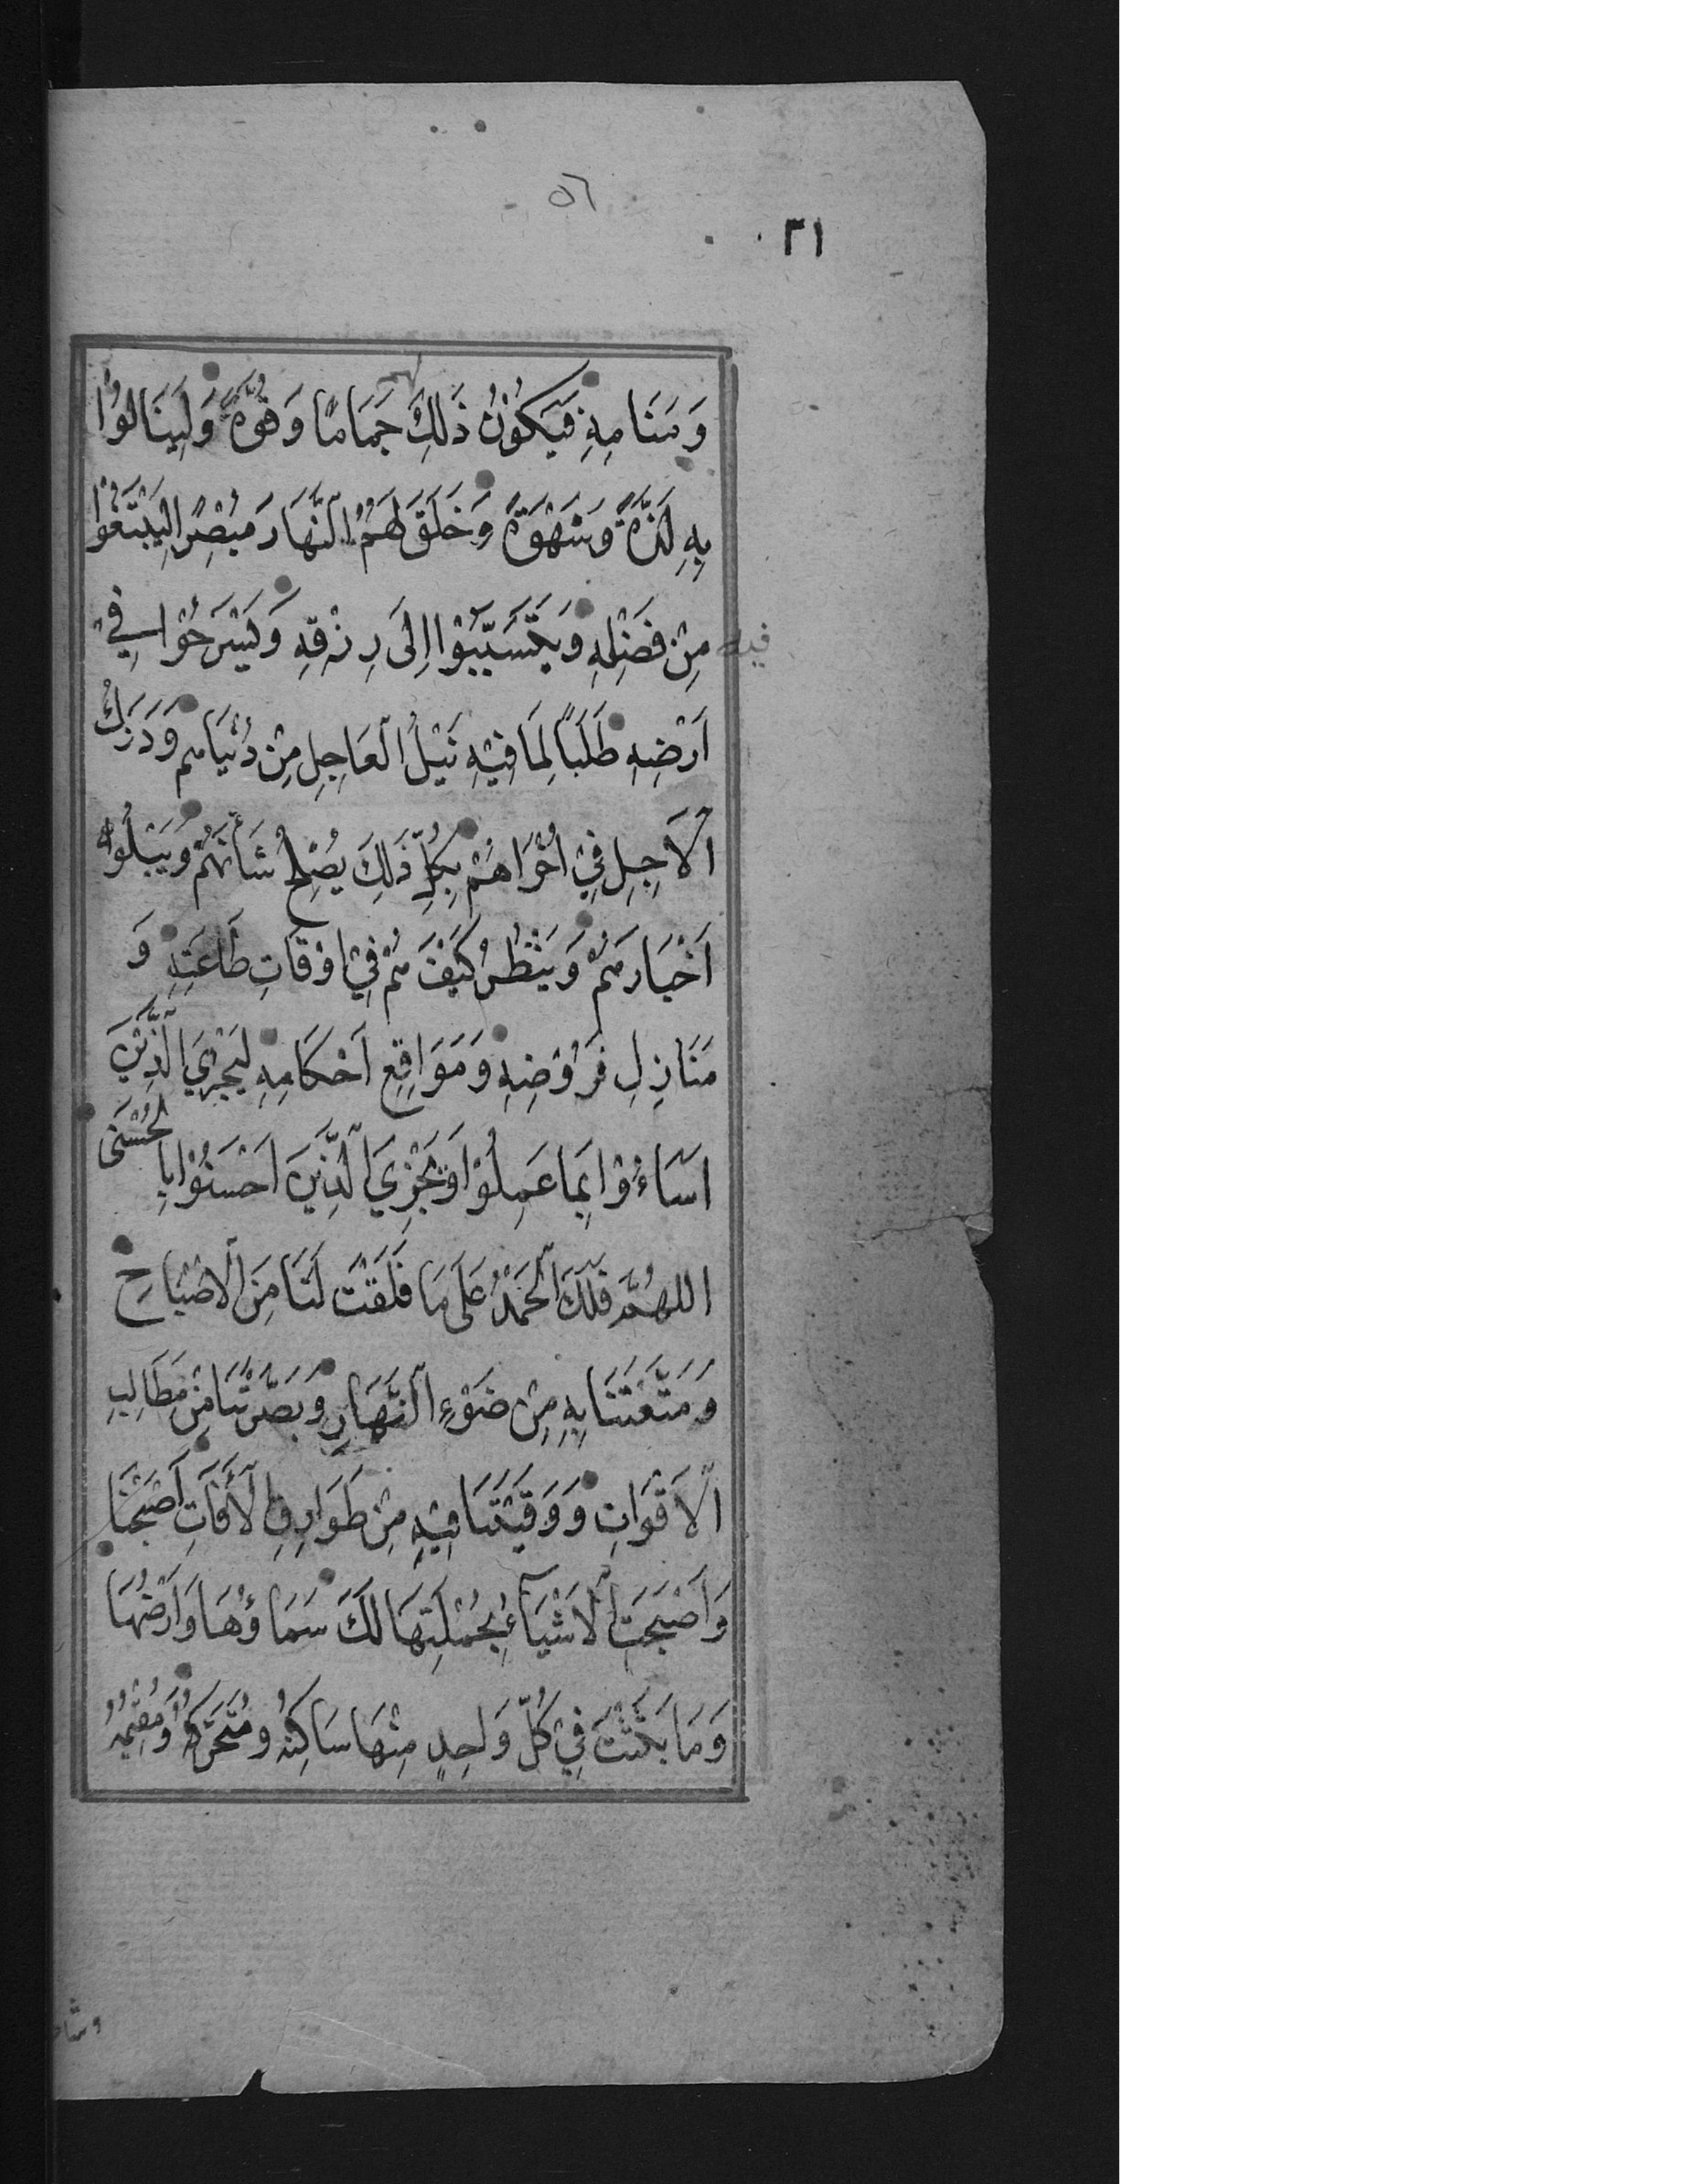 ٥٦
٣١
وَمَنَامِهِ فَيَكُوْنُ ذَلِكَ لهم جَمَامًا وَقُوَّةً وَلِيَنَالُوْا
بِهِ لَذَّةً وَشَهْوَةً وَخَلَقَ لَهُمُ النَّهَارَ مُبْصِرًا لِيَبْتَغُوْا
فيه مِنْ فَضْلِهِ وَيَتَسَبَّبُوْا اِلَى رِزْقِهِ وَيَسْرَحُوْا فِيْ
اَرْضِهِ طَلَبًا لِمَا فِيْهِ نَيْلُ الْعَاجِلِ مِنْ دُنْيَاهم وَدَرَكُ
الْاَجِلِ فِيْ اُخْرَاهُمْ بِكُلِّ ذَلِكَ يُصْلِحُ شَأْنَهُمْ وَيَبْلُوا
اَخْبَارَهُمْ وَيَنْظُرُ كَيْفَ هُمْ فِيْ اَوْقَاتِ طَاعَتِهِ وَ
مَنَازِلِ فُرُوْضِهِ وَمَوَاقِعِ اَحْكَامِهِ لِيَجْزِيَ الَّذِيْنَ
اَسَاءُوْا بِمَا عَمِلُوْا وَيَجْزِيَ الَّذِيْنَ اَحْسَنُوْا بِالْحُسْنَى
اللهُمَّ فَلَكَ الْحَمْدُ عَلَى مَا فَلَقْتَ لَنَا مِنَ الْاِصْبَاحِ
وَمَتَّعْتَنَا بِهِ مِنْ ضَوْءِ النَّهَارِ وَبَصَّرْتَنَا مِنْ مَطَالِبِ
الْاَقْوَاتِ وَوَقَيْتَنَا فِيْهِ مِنْ طَوَارِقِ الْأَفَاتِ اَصْبَحْنَا
وَاَصْبَحَتِ الْاَشْيَاءُ بِجُمْلَتِهَا لَكَ سَمَاؤُهَا وَاَرْضُهَا
وَمَا بَثَثْتَ فِيْ كُلِّ وَاحِدٍ مِنْهَا سَاكِنُهُ وَمُتَحَرِّكُهُ وَمُقِيْمُهُ